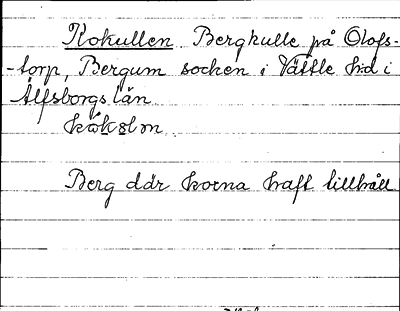 Kokullen Bergkulle på Olofs-
-torp, Bergum socken i Vättle h:d i
Älfsborgs län
Berg där korna haft tillhåll